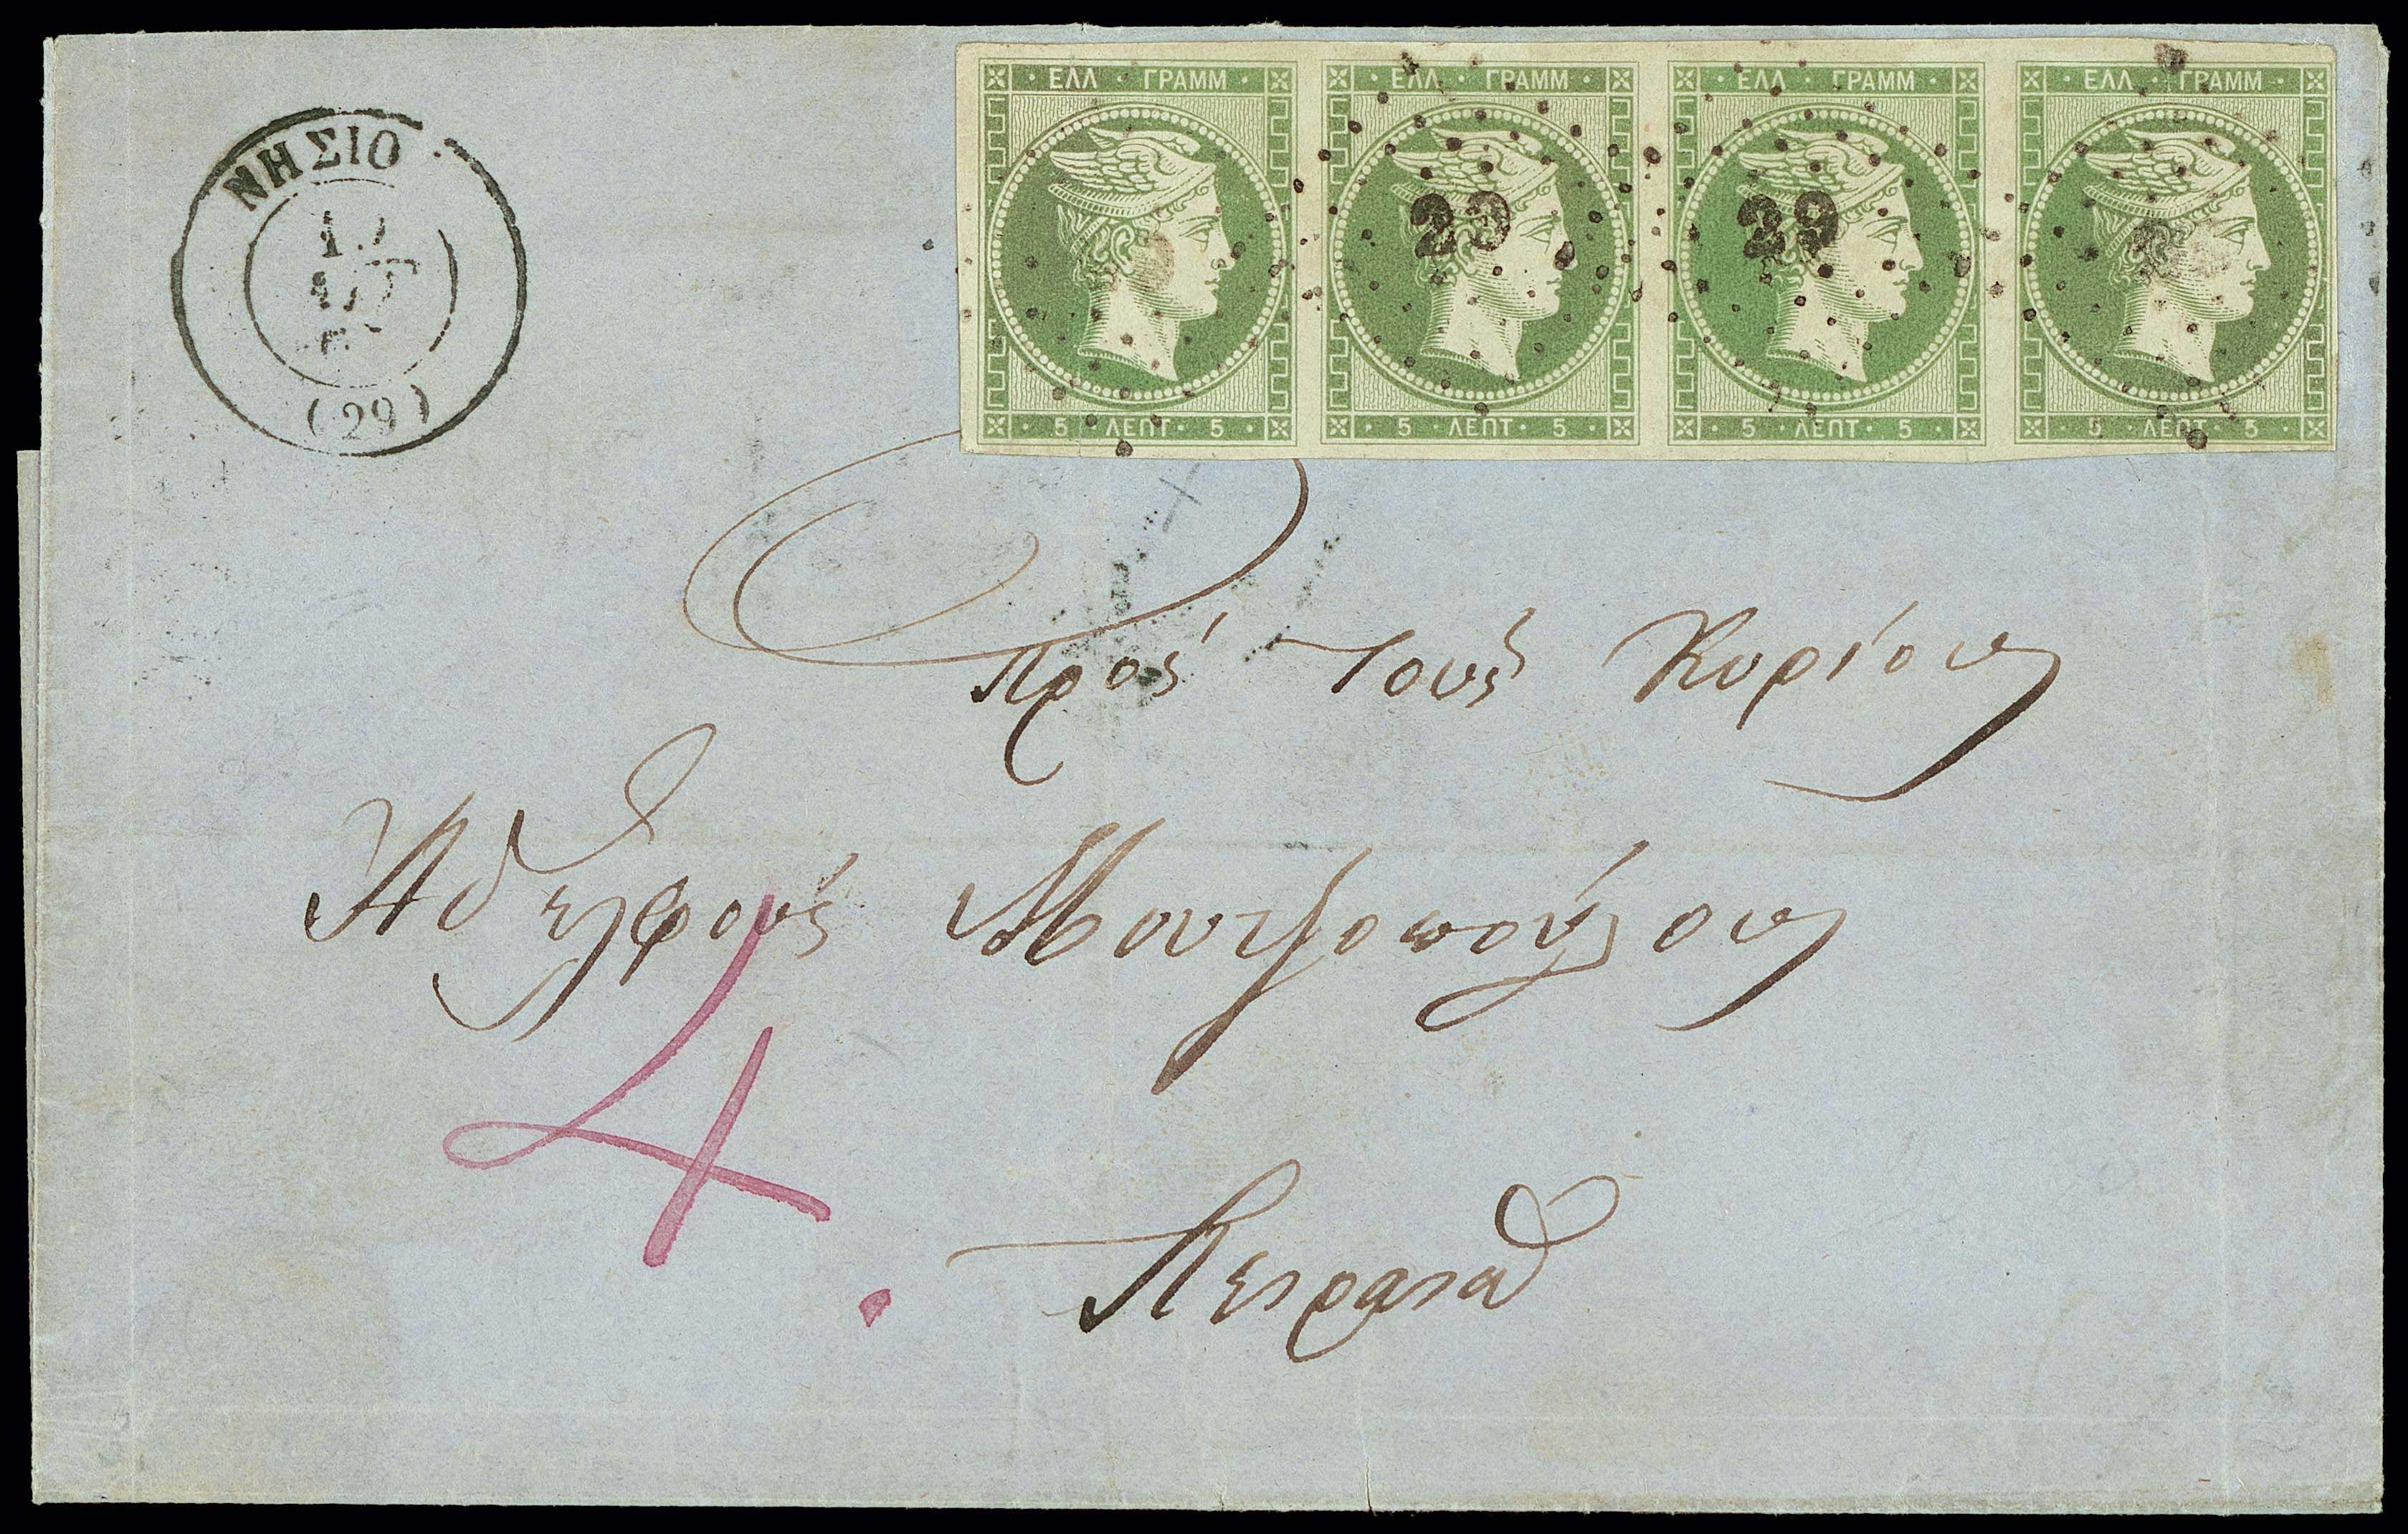 ΝΗΣΙΟ
(29)
ΕΛΛ · ΓΡΑΜΜ
5 · ΛΕΠΤ · 5
ΕΛΛ · ΓΡΑΜΜ
29
5 · ΛΕΠΤ · 5
ΕΛΛ · ΓΡΑΜΜ
29
5 · ΛΕΠΤ · 5
ΕΛΛ · ΓΡΑΜΜ
5 · ΛΕΠΤ · 5
Πρὸς τοὺς Κυρίους
Ἀδελφοὺς Μουτζοπούλους
4.
Πειραιᾶ